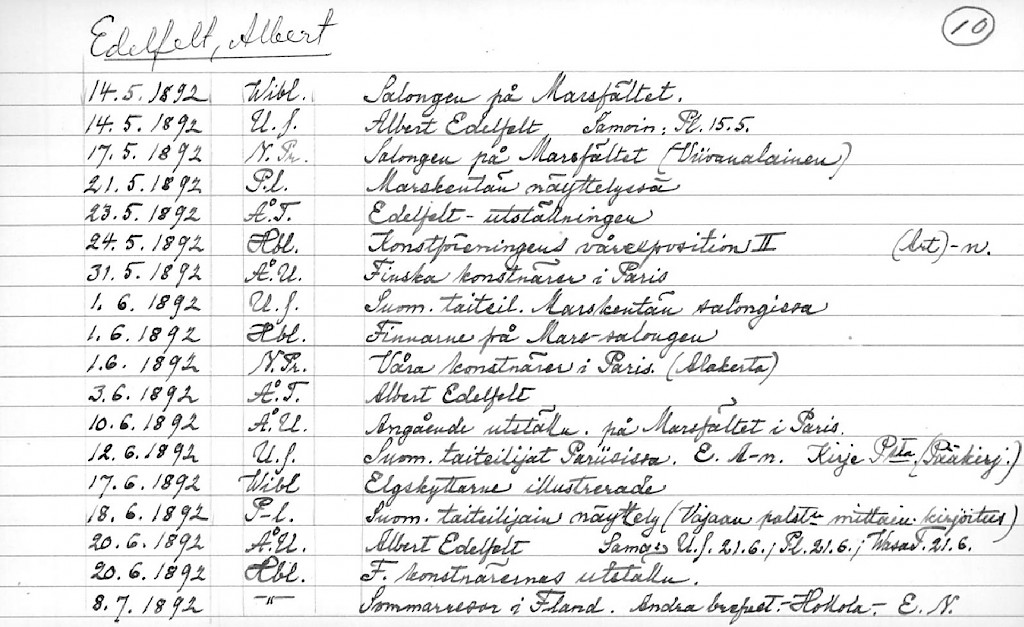 Edelfelt, Albert 10
14.5.1892 Wibl. Salongen på Marsfältet.
14.5.1892 U.S. Albert Edelfelt Samoin: Pl. 15.5.
17.5.1892 N.Pr. Salongen på Marsfältet (Viivanalainen)
21.5.1892 P.l. Marskentän näyttelyssä
23.5.1892 Å.T. Edelfelt-utställningen
24.5.1892 Hbl. Konstföreningens vårexposition II (Art)-n.
31.5.1892 Å.U. Finska konstnärer i Paris
1.6.1892 U.S. Suom. taiteil. Marskentän salongissa
1.6.1892 Hbl. Finnarne på Mars-salongen
1.6.1892 N.Pr. Våra konstnärer i Paris. (Alakerta)
3.6.1892 Å.T. Albert Edelfelt
10.6.1892 Å.U. Angående utställn. på Marsfältet i Paris.
12.6.1892 U.S. Suom. taiteilijat Pariisissa. E. A-n. Kirje P:sta (Pääkirj.)
17.6.1892 Wibl Elgskyttarne illustrerade
18.6.1892 P-l. Suom. taiteilijain näyttely (Vajaan palstn mittain. kirjoitus)
20.6.1892 Å.U. Albert Edelfelt U.S. 21.6.; Pl. 21.6.; WasaT. 21.6.
20.6.1892 Hbl. F. konstnärernas utställn.
8.7.1892 -"- Sommarresor i Fland. Andra brefvet.- Hollola.- E.N.